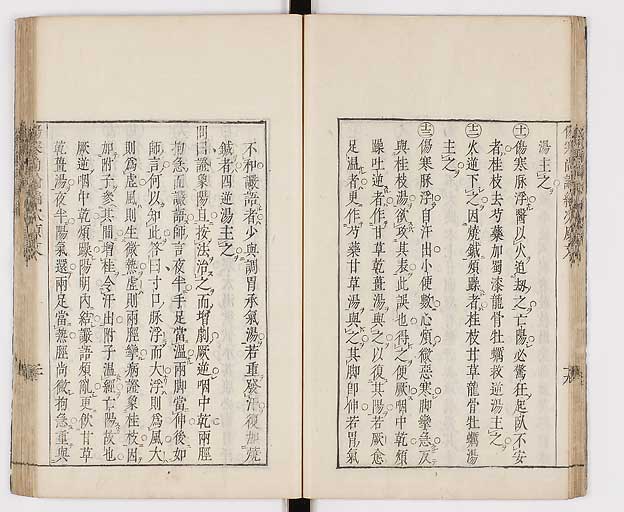 湯主之
㊉一傷寒脉浮醫以火迫劫之亡陽必驚狂起臥不安
者桂枝去芍藥加蜀漆龍骨牡蠣救逆湯主之
㊉二火逆下之因燒鍼煩躁者桂枝甘草龍骨牡蠣湯
主之
㊉三傷寒脉浮自汗出小便數心煩微惡寒脚攣急反
與桂枝湯欲攻其表此誤也得之便厥咽中乾煩
躁吐逆者作甘草乾薑湯與之以復其陽若厥愈
足溫者更作芍藥甘草湯與之其脚即伸若胃氣
不和讝語者少與調胃承氣湯若重發汗復加燒
鍼者四逆湯主之
問曰證象陽旦按法治之而增劇厥逆咽中乾兩脛
拘急而讝語師言夜半手足當溫兩脚當伸後如
師言何以知此答曰寸口脉浮而大浮則爲風大
則爲虛風則生微熱虛則兩脛攣病證象桂枝因
加附子參其間增桂令汗出附子溫經亡陽故也
厥逆咽中乾煩躁陽明內結讝語煩亂更飲甘草
乾薑湯夜半陽氣還兩足當熱脛尚微拘急重與